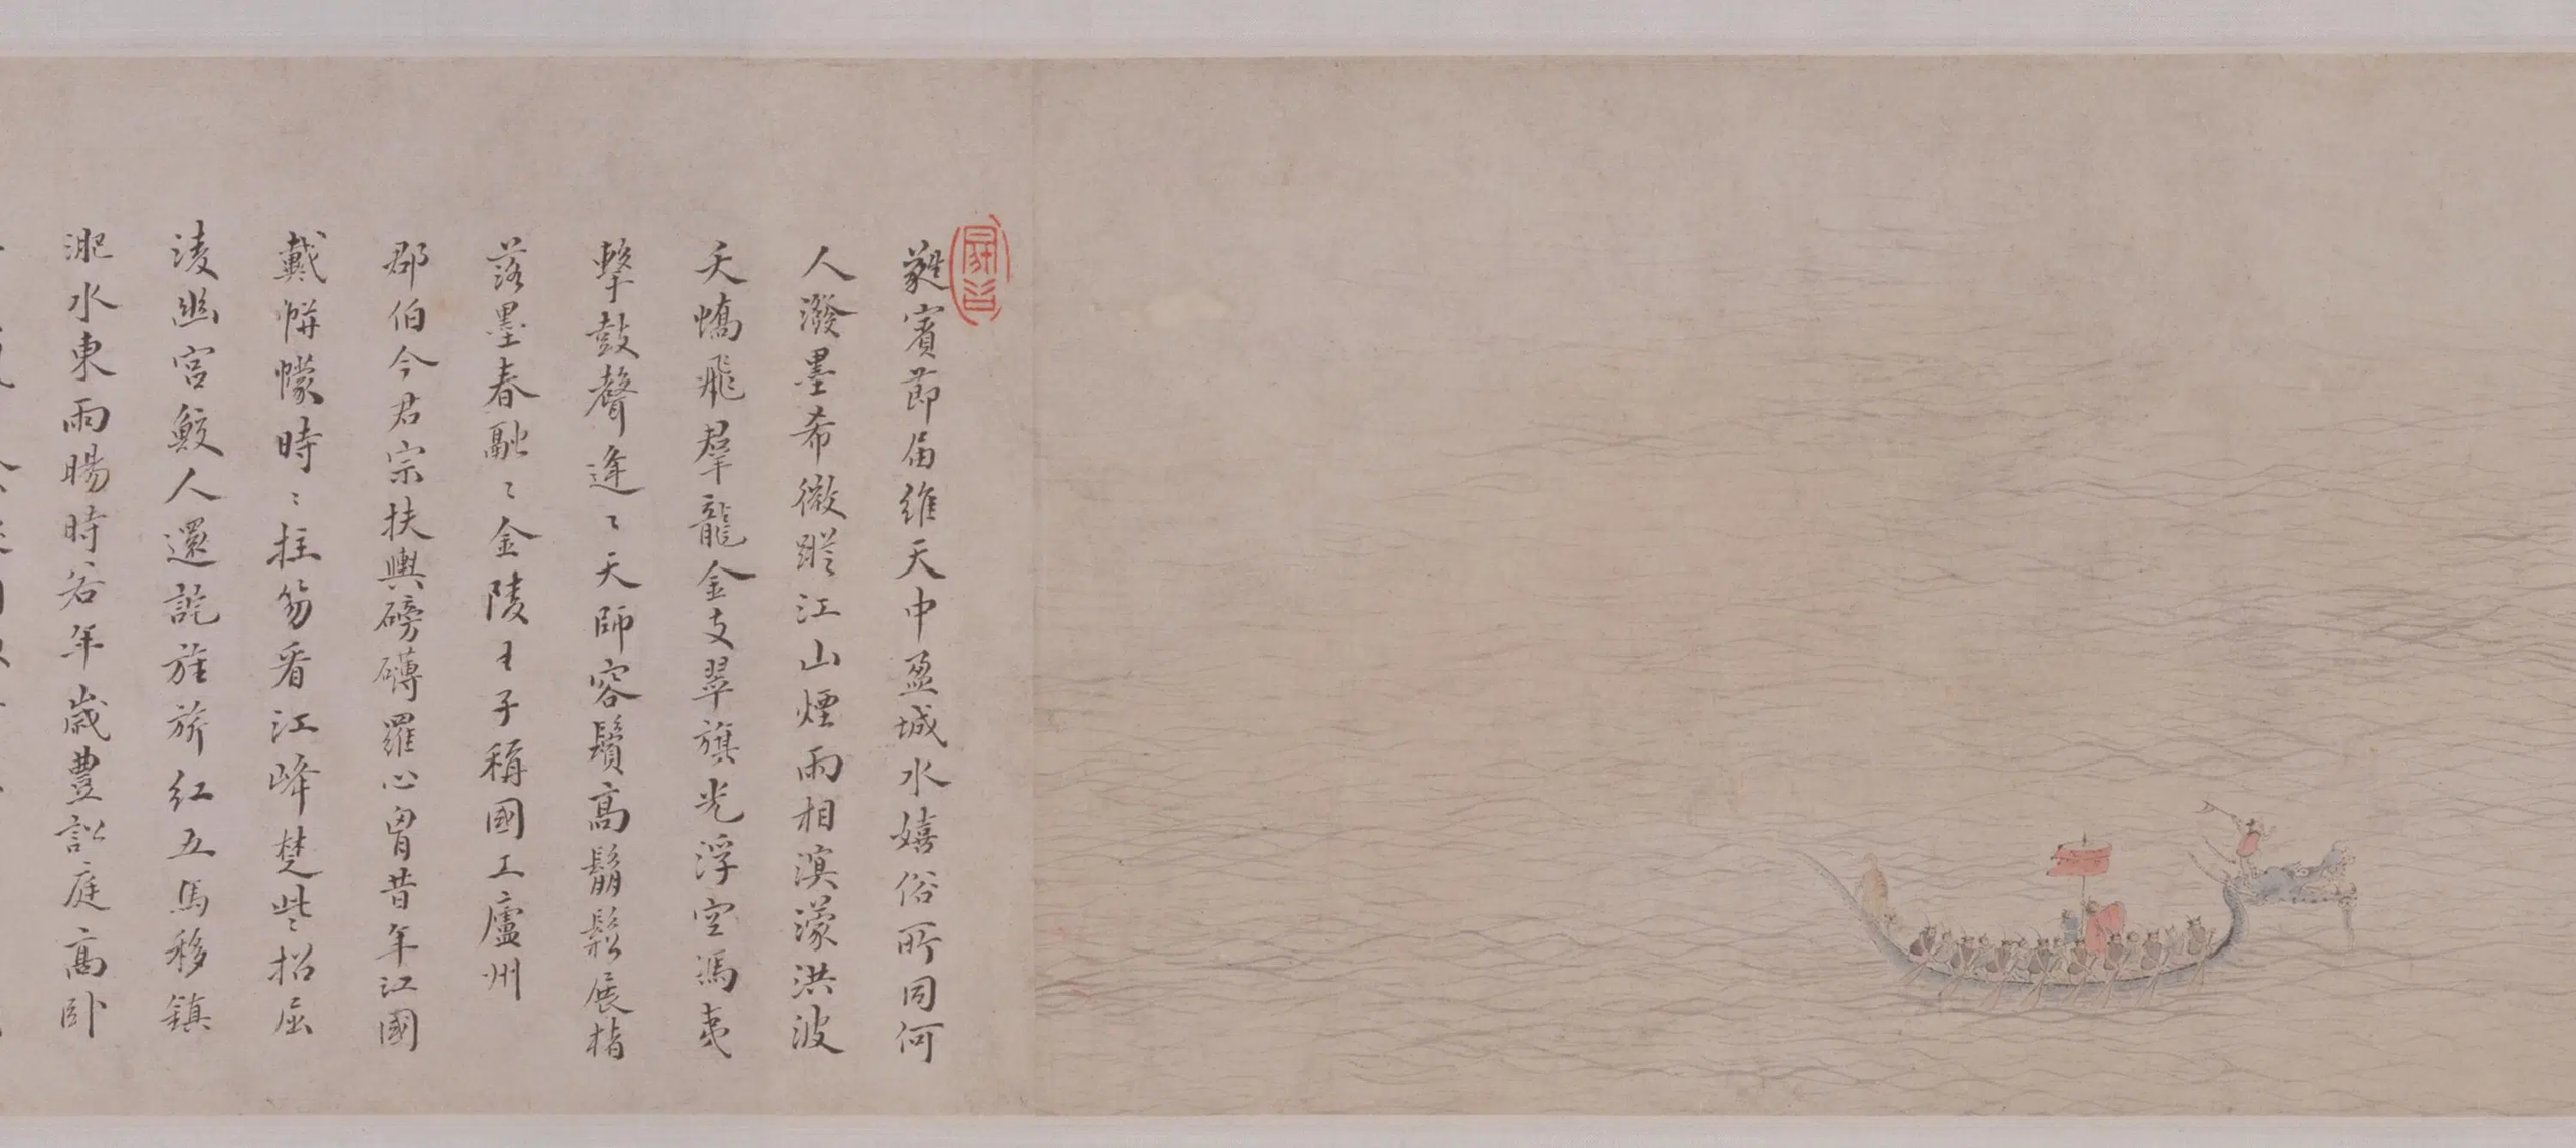 蕤賓節届維天中盈城水嬉俗所同何
人潑墨希微蹤江山煙雨相溟濛洪波
夭矯飛羣龍金支翠旗光浮空馮夷
擊鼓聲逄〻天師容鬢高鬅鬆展楮
落墨春融〻金陵王子稱國工廬州
郡伯今君宗扶輿磅礴羅心胷昔年江國
戴帡幪時〻拄笏看江峰楚些招屈
淩幽宮鮫人還詫旌旂紅五馬移鎮
淝水東雨暘時若年歲豊訟庭高卧